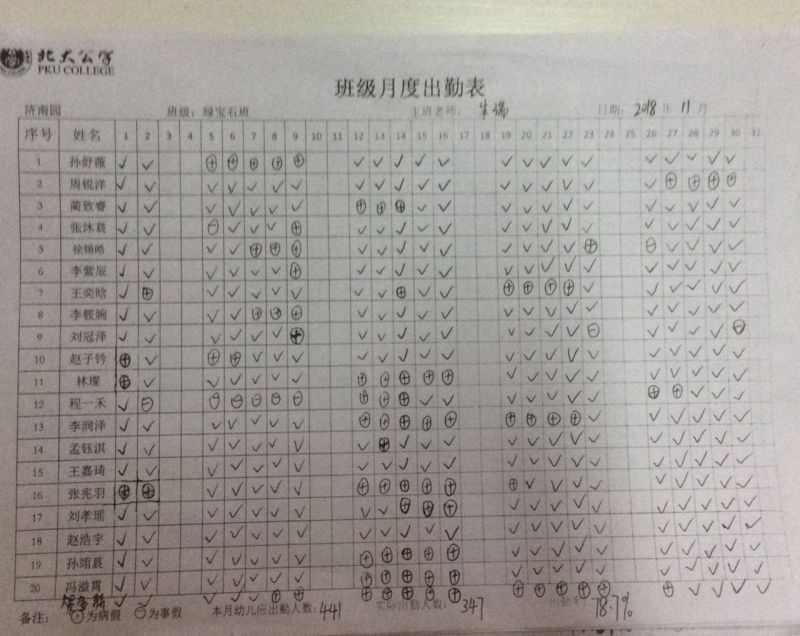 北大公学
PKU COLLEGE
班级月度出勤表
济南园 班级：绿宝石班 主班老师： 日期：2018年11月
序号 姓名 1 2 3 4 5 6 7 8 9 10 11 12 13 14 15 16 17 18 19 20 21 22 23 24 25 26 27 28 29 30 31
1 孙舒薇
2 周锐洋
3 蔺致睿
4 张沐晨
5 徐锡皓
6 李紫辰
7 王奕晗
8 李筱婉
9 刘冠泽
10 赵子钤
11 林璨
12 程一禾
13 李润泽
14 孟钰淇
15 王嘉琦
16 张宪羽
17 刘孝瑶
18 赵浩宇
19 孙翊晨
20 冯溢霄
备注： ⊕为病假 ⊖为事假 本月幼儿应出勤人数：441 实际出勤人数：347 出勤率：78.7%